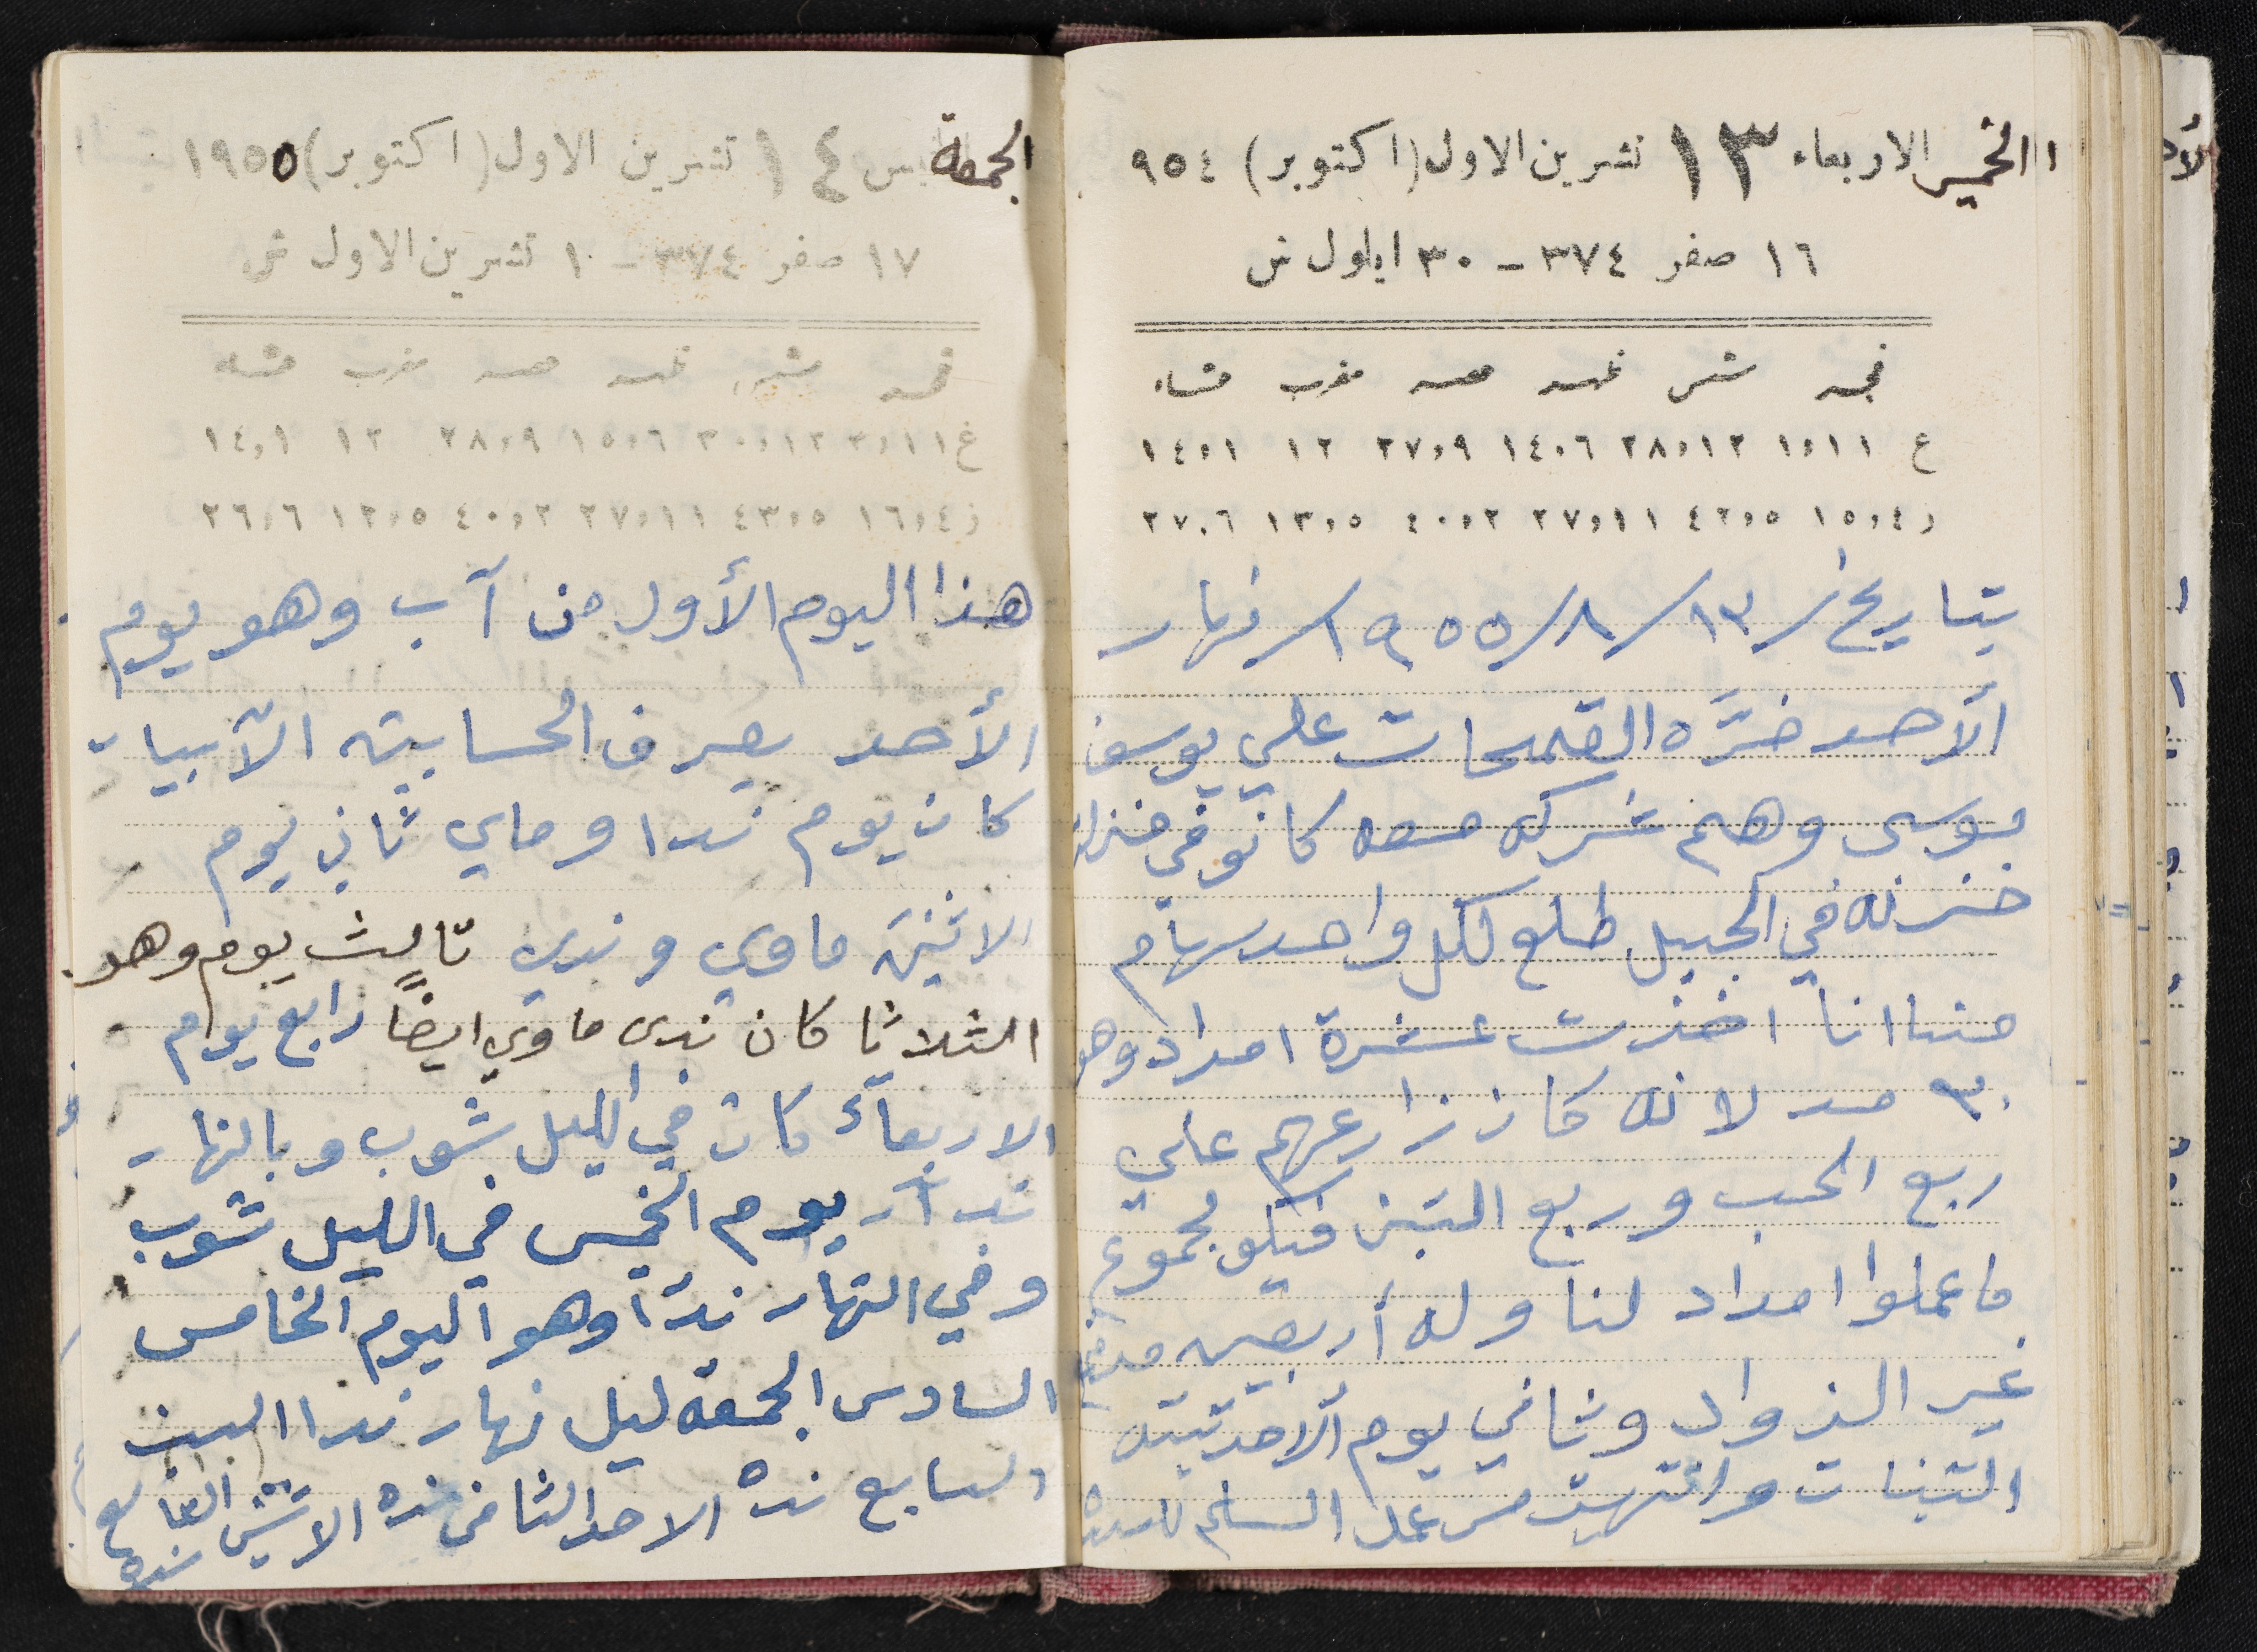 الخميس الاربعاء ١٣ تشرين الاول (اكتوبر) ٩٥٤
١٦ صفر ٣٧٤ - ٣٠ ايلول ش
فجر شمس ظهر عصر مغرب عشاء
ع ١،١١ ٢٨،١٢ ١٤،٦ ٢٧،٩ ١٢ ١٤،١
ز ١٥،٤ ٤٢،٥ ٢٧،١١ ٤٠،٢ ١٣،٥ ٢٧،٦
بتاريخ / ١٣ / ٨ / ١٩٥٥ / نهار
الأحد القمحات علي يوسف
موسى وهم شركه معه كانو في
خزنه في الجبل طلع لكل واحد سهام
منا انا اخذت عشرة امداد وهو
٣٠ مد لانه كان زارعهم علي
ربع الحب وربع التبن مجموع
ما عملوا امداد لنا وله أربعين
غير الزواد وثاني يوم الأحد
التبنات وانتهيت من عمل
الجمعة ١٤ تشرين الاول (اكتوبر) ١٩٥٥
١٧ صفر ٣٧٤ - ١ تشرين الاول ش
فجر شمس ظهر عصر مغرب عشاء
غ ٣،١١ ٣٠،١٢ ١٥،٦ ٢٨،٩ ١٢ ١٤،١
ز ١٦،٤ ٤٣،٥ ٢٧،١١ ٤٠،٢ ١٢،٥ ٢٦،٦
هذا اليوم الأول من آب وهو يوم
الأحد بصرف الحسابيته الآبيات
كان يوم ندا وماي ثاني يوم
الاثنين ماوي وندي ثالث يوم وهو
الثلاثا كان ندى ماوي ايضاً رابع يوم
الاربعآء كان في الليل شوب وبالنهار
ندآ يوم الخميس في الليل شوب
وفي النهار ندآ وهو اليوم الخامس
السادس الجمعه ليل نهار ندا السبت
السابع نده الاحد الثامن نده الاثنين التاسع
نده